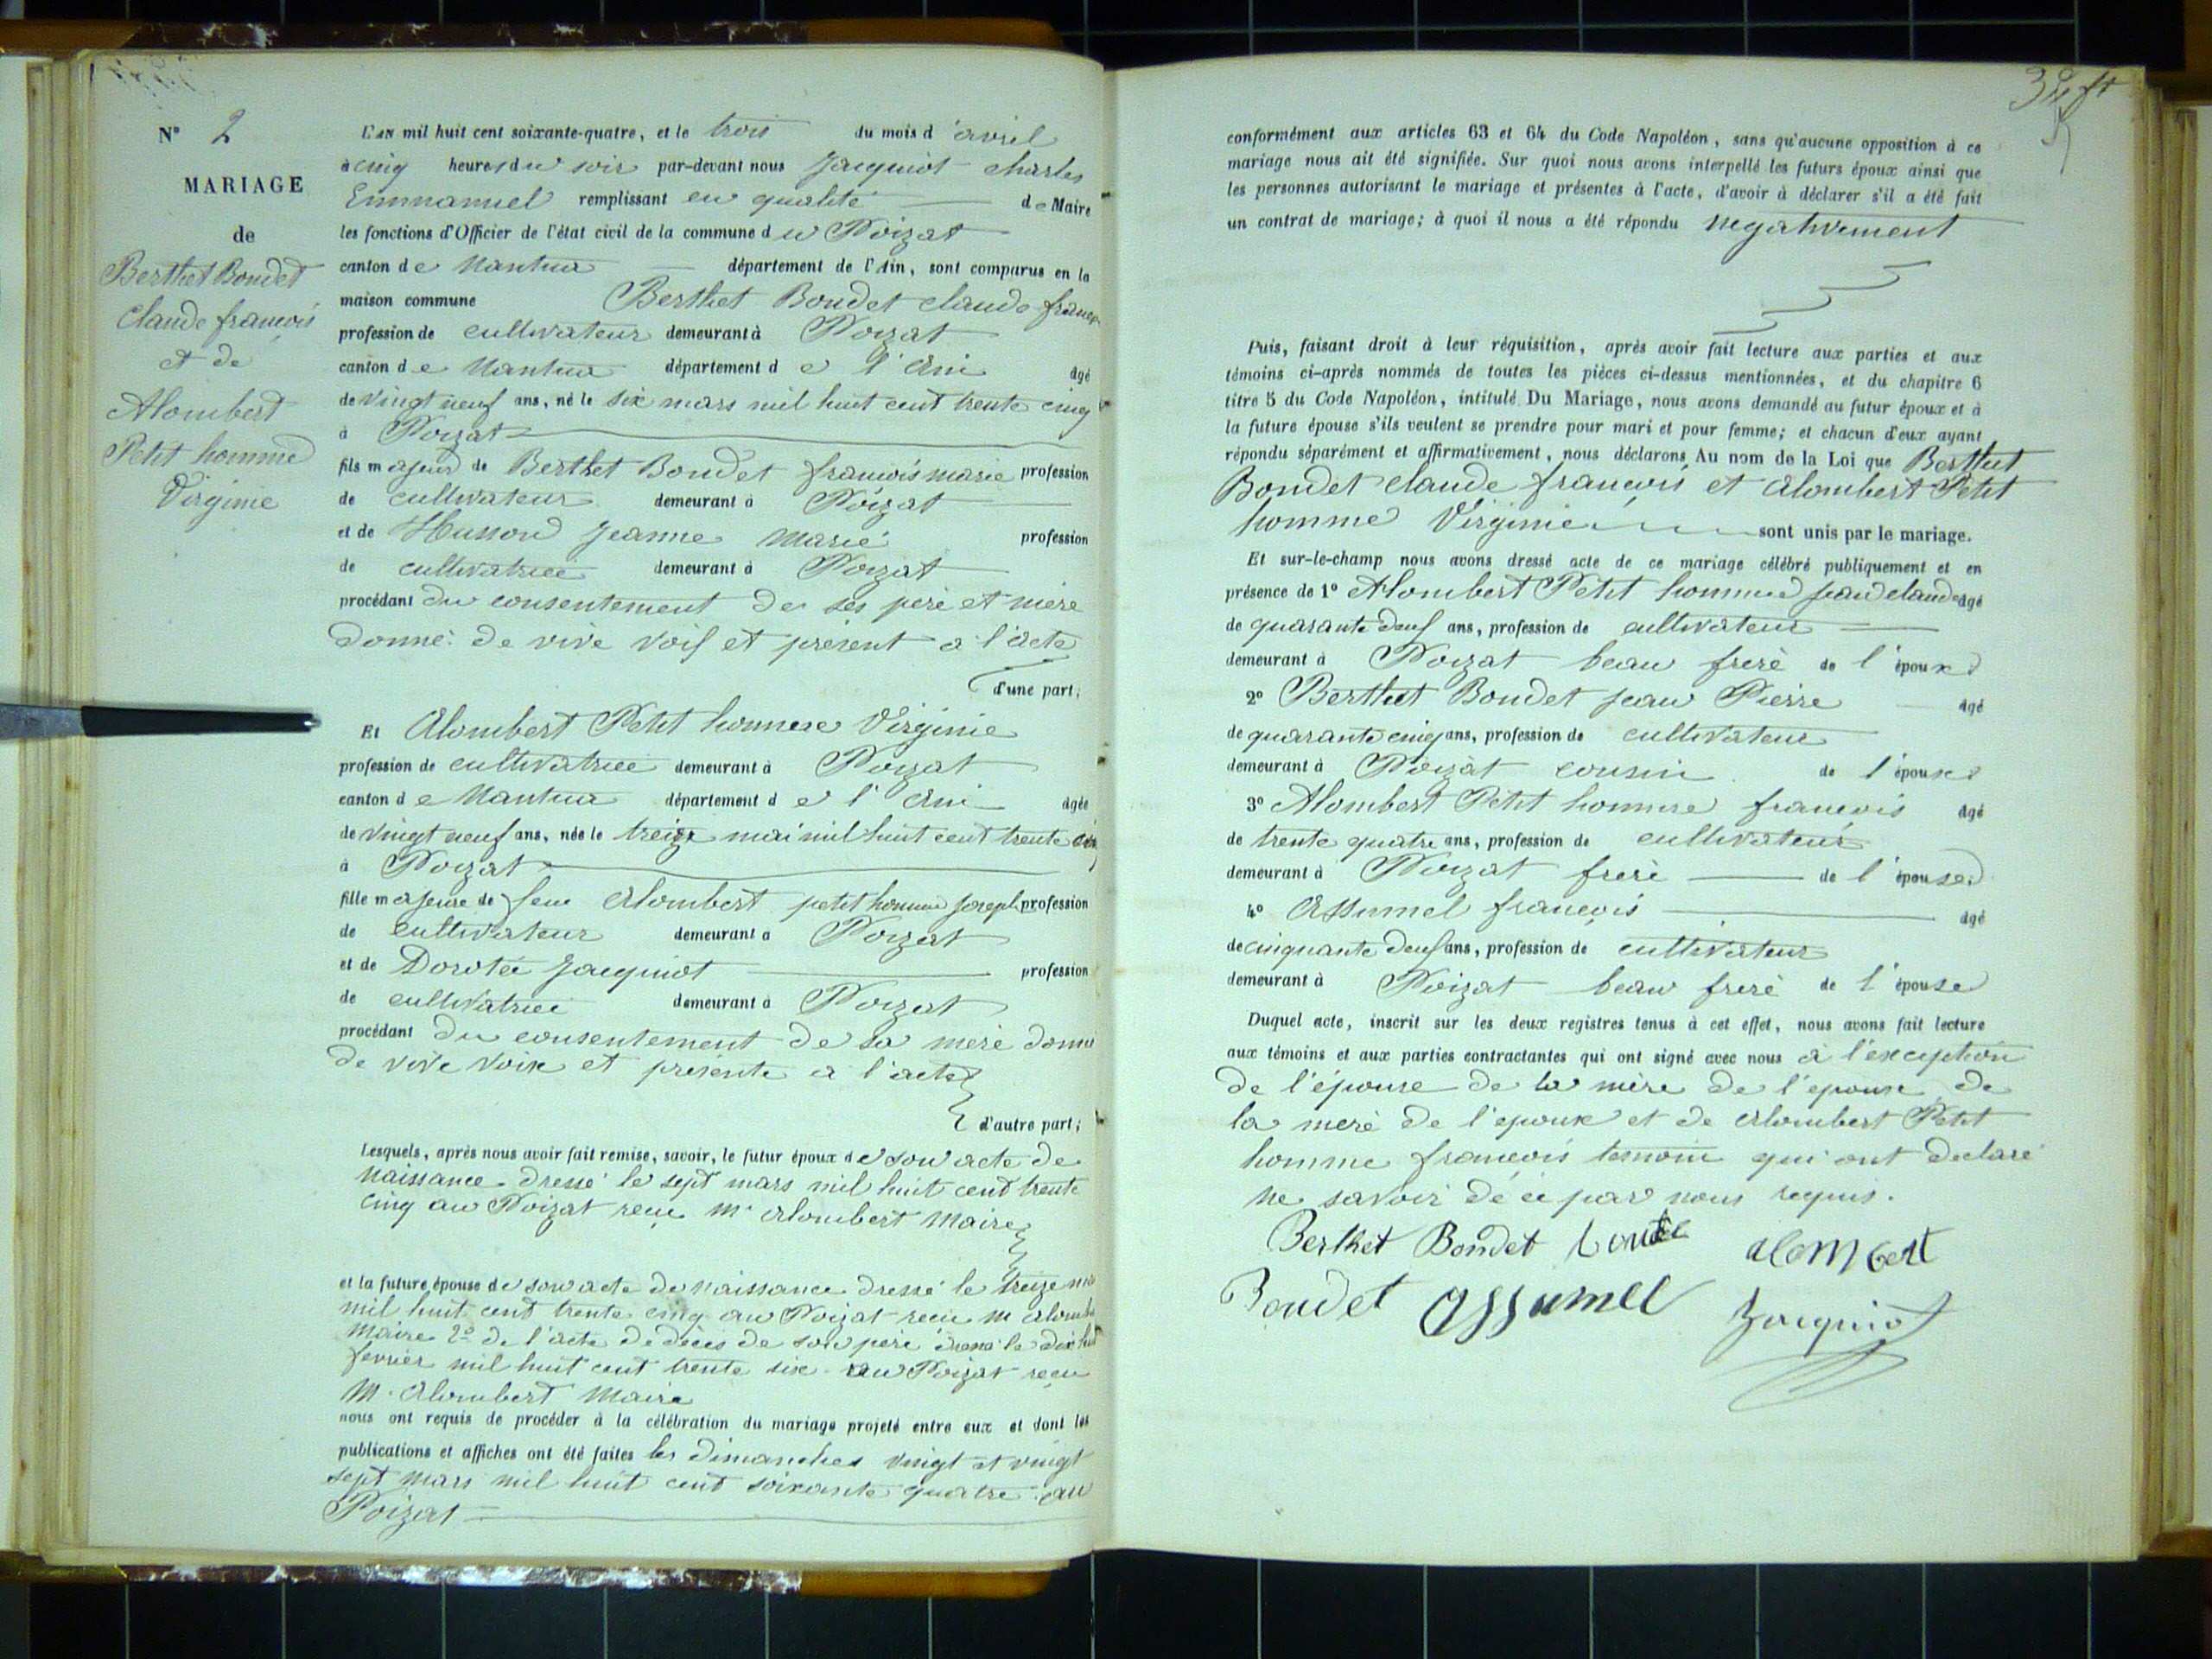 N° 2
MARIAGE
de
Berthet Bondet
Claude francois
et de
Alombert
Petit homme
Virginie
L'an mil huit cent soixante-quatre, et le trois du mois d'avril
à cinq heures du soir par-devant nous Jacquiot charles
Emmanuel remplissant en qualité de Maire
les fonctions d'Officier de l'état civil de la commune du Poizat
canton de Nantua département de l'Ain, sont comparus en la
maison commune Berthet Bondet claude franç
profession de cultivateur demeurant à Poizat
canton de Nantua département de l'Ain âgé
de vingt neuf ans, né le six mars mil huit cent trente cinq
à Poizat
fils majeur de Berthet Bondet francois marie profession
de cultivateur demeurant à Poizat
et de Husson Jeanne marie profession
de cultivatrice demeurant à Poizat
procédant du consentement de ses père et mère
donné de vive voif et présent a l'acte
d'une part;
Et Alombert Petit homme Virginie
profession de cultivatrice demeurant à Poizat
canton de Nantua département de l'Ain âgée
de vingt neuf ans, née le treize mai mil huit cent trente cinq
à Poizat
fille majeure de feu Alombert petit homme Joseph profession
de cultivateur demeurant a Poizat
et de Dorotée Jacquiot profession
de cultivatrice demeurant à Poizat
procédant du consentement de sa mère donné
de vive voix et présente a l'acte
d'autre part;
Lesquels, après nous avoir fait remise, savoir, le futur époux de son acte de
naissance dressé le sept mars mil huit cent trente
cinq au Poizat reçu Mr Alombert Maire
et la future épouse de son acte de naissance dressé le treize mai
mil huit cent trente cinq au Poizat recu m alomb
maire 2° de l'acte de décès de son père dressé le dix huit
fevrier mil huit cent trente six au Poizat reçu
M. Alombert Maire
nous ont requis de procéder à la célébration du mariage projeté entre eux et dont les
publications et affiches ont été faites les dimanches vingt et vingt
sept mars mil huit cent soixante quatre au
Poizat
conformément aux articles 63 et 64 du Code Napoléon, sans qu'aucune opposition à ce
mariage nous ait été signifiée. Sur quoi nous avons interpellé les futurs époux ainsi que
les personnes autorisant le mariage et présentes à l'acte, d'avoir à déclarer s'il a été fait
un contrat de mariage; à quoi il nous a été répondu négativement
Puis, faisant droit à leur réquisition, après avoir fait lecture aux parties et aux
témoins ci-après nommés de toutes les pièces ci-dessus mentionnées, et du chapitre 6
titre 5 du Code Napoléon, intitulé Du Mariage, nous avons demandé au futur époux et à
la future épouse s'ils veulent se prendre pour mari et pour femme; et chacun d'eux ayant
répondu séparément et affirmativement, nous déclarons Au nom de la Loi que Berthet
Bondet claude francois et Alombert Petit
homme Virginie sont unis par le mariage.
Et sur-le-champ nous avons dressé acte de ce mariage célébré publiquement et en
présence de 1° Alombert Petit homme jean claude âgé
de quarante deuf ans, profession de cultivateur
demeurant à Poizat beau frère de l'époux
2° Berthet Bondet jean Pierre âgé
de quarante cinq ans, profession de cultivateur
demeurant à Poizat cousin de l'époux
3° Alombert Petit homme francois âgé
de trente quatre ans, profession de cultivateur
demeurant à Poizat frère de l'épouse
4° Assumel françois âgé
de cinquante deuf ans, profession de cultivateur
demeurant à Poizat beau frère de l'épouse
Duquel acte, inscrit sur les deux registres tenus à cet effet, nous avons fait lecture
aux témoins et aux parties contractantes qui ont signé avec nous à l'exception
de l'épouse de la mère de l'epouse de
la mere de l'epoux et de Alombert Petit
homme francois temoin qui ont declaré
ne savoir de ce par nous requis.
Berthet Bondet alombert
Bondet assumel Jacquiot